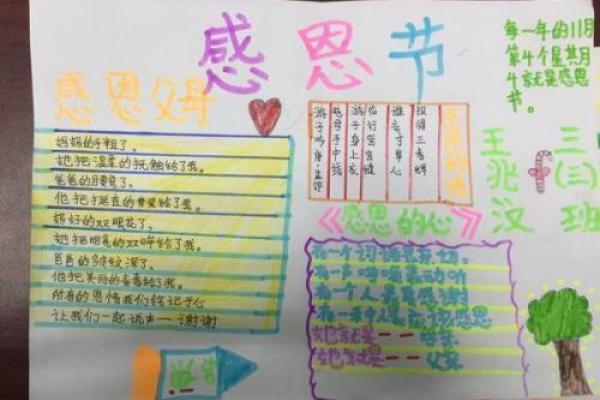 感恩节
每一年的11月
第4个星期
4就是感恩
节。
感恩父母
妈妈的手粗了,
她把温柔的抚触给了我。
爸爸的腰弯了,
他把挺直的脊梁给了我。
妈妈的双眼花了,
她把明亮的双眸给了我。
爸爸的皱纹深了,
他把美丽的青春给了我。
所有的恩情我们铭记于心
让我们一起说声——谢谢
慈母手中线
游子身上衣
临行密密缝
谁言寸草心
报得三春晖
三(三)班
王兆汉
《感恩的心》
有一个词语最亲切
有一声呼唤最动听
有一个人最要感谢
有一种人最应该感恩
她就是——母亲
他就是——父亲